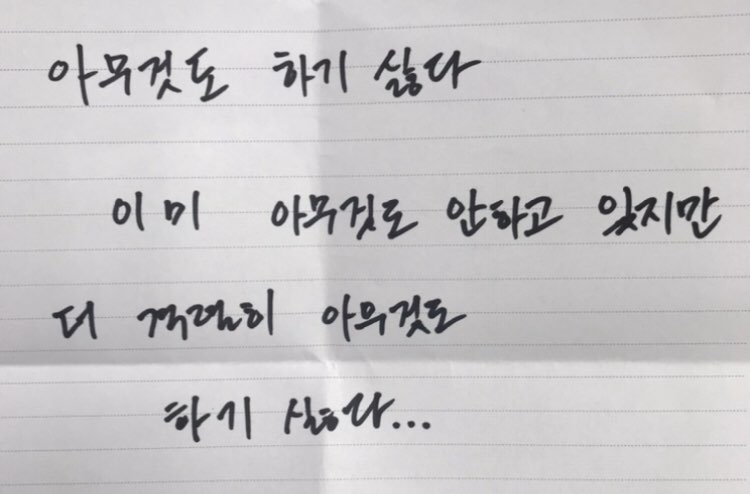 아무것도 하기 싫다
이미 아무것도 안하고 있지만
더 격렬히 아무것도
하기 싫다...